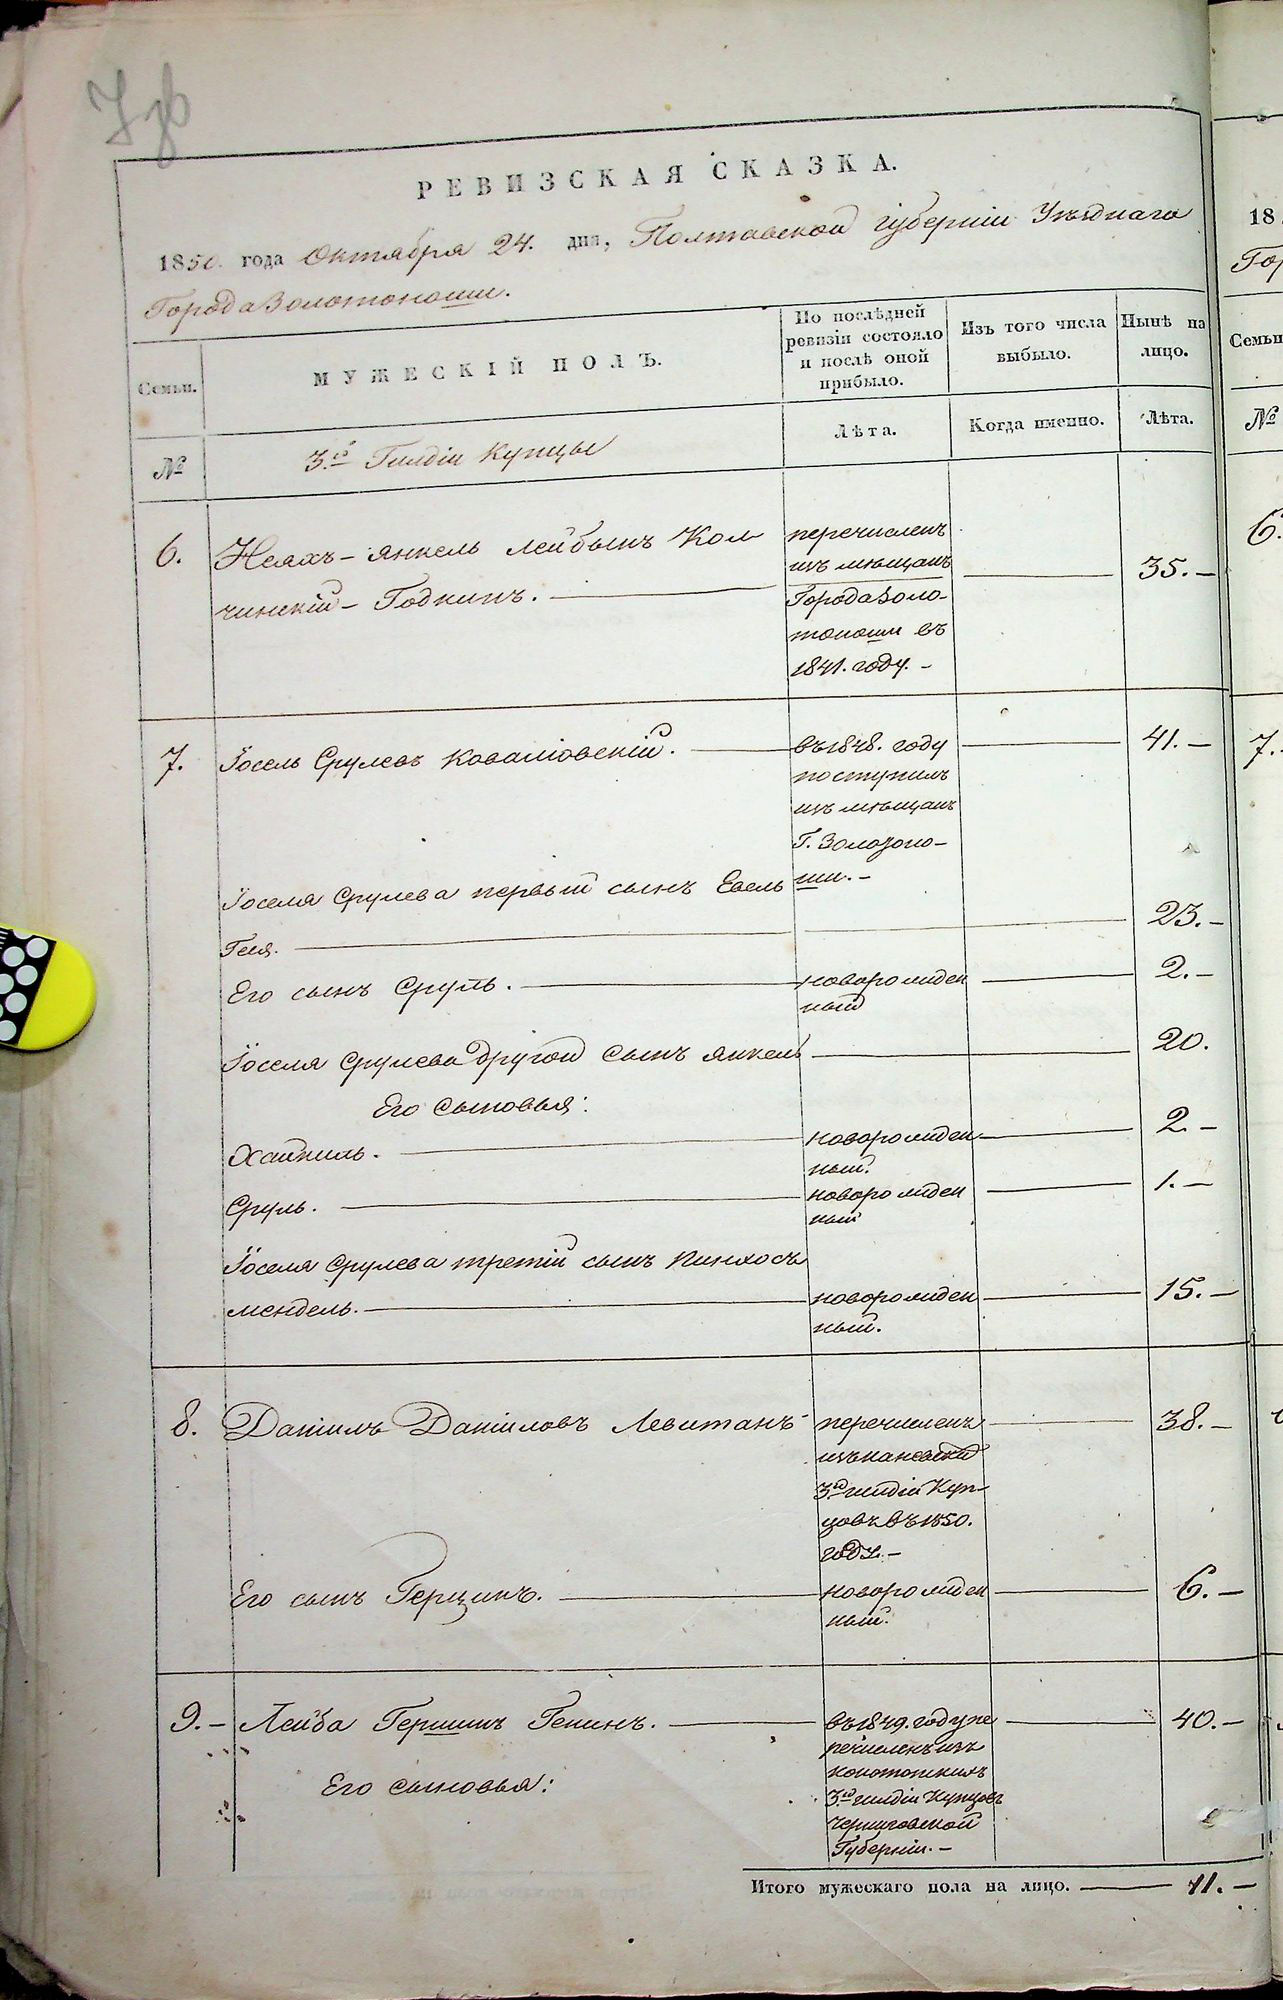 РЕВИЗСКАЯ СКАЗКА.
1850 года Октября 24. дня, Полтавской губерніи Уѣзднаго
Города Золотоноши.
Семьи.
МУЖЕСКІЙ ПОЛЪ.
По послѣдней
ревизіи состояло
и послѣ оной
прибыло.
Изъ того числа
выбыло.
Нынѣ на
лицо.
№
3.ей Гилдіи Купцы
Лѣта.
Когда именно.
Лѣта.
6.
янкель Лейбынъ Кол
чинскій - Годкинъ.
перечисленъ
изъ мѣщанъ
Города Золо-
тоноши въ
1841. году. -
35. -
7.
Іосель Срулевъ Коваліовскій.
въ 1848. году
поступилъ
изъ мѣщанъ
Г. Золотоно-
ши. -
41. -
Іоселя Срулева первый сынъ Евель
Геся.
23. -
Его сынъ Сруль.
новорожден
ный
2. -
Іоселя Срулева другой сынъ янкель
20.
Его сыновья:
Хаикиль.
новорожден
ный.
2. -
Сруль.
новорожден
ный
1. -
Іоселя Срулева третій сынъ Пинхосъ
мендель.
новорожден
ный.
15. -
8.
Даніилъ Даніиловъ Левитанъ
перечисленъ
изъ каневской
3.ей гилдіи Куп-
цовъ въ 1850.
году. -
38. -
Его сынъ Герцикъ.
новорожден
ный.
6. -
9. -
Лейба Гершинъ Генинъ.
въ 1849. году пе
речисленъ изъ
конотопкихъ
3.ей гилдіи Купцовъ
черниговской
Губерніи. -
40. -
Его сыновья:
Итого мужескаго пола на лицо. 11. -
18
Гор
Семьи
№
6.
7.